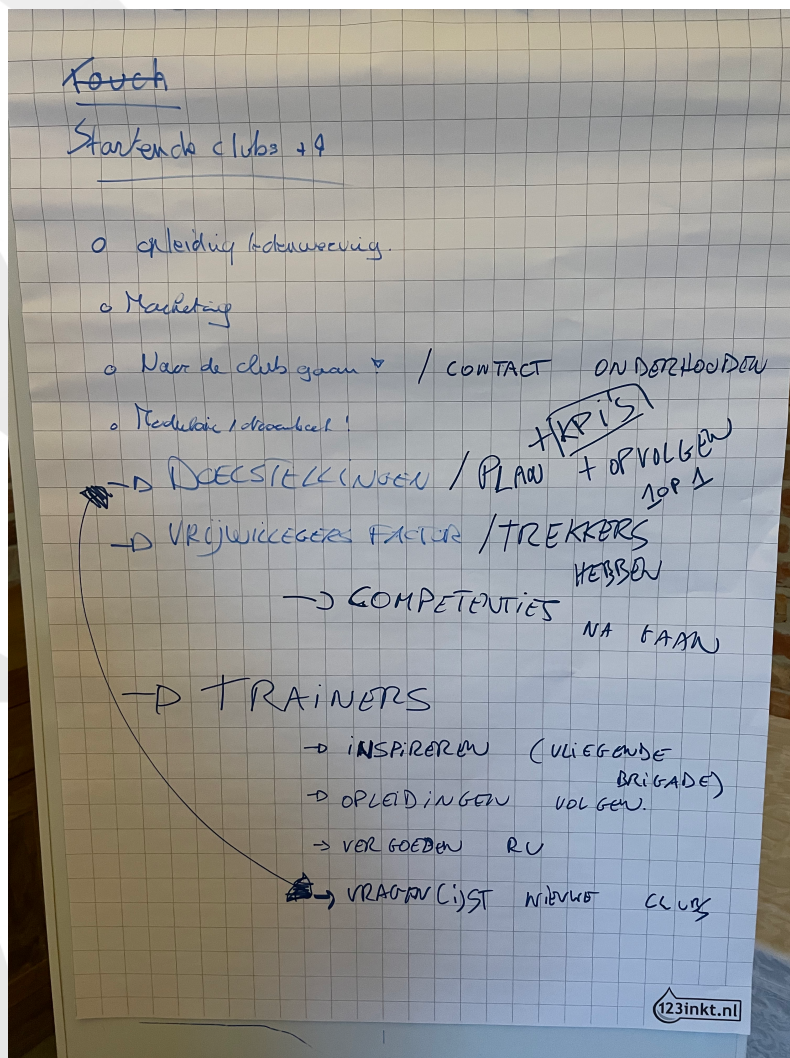 Touch
Startende clubs + 4
o opleiding ledenwerving.
o Marketing
o Naar de club gaan / CONTACT ONDERHOUDEN
o !
+ KPI'S
→ DOELSTELLINGEN / PLAN + OPVOLGEN
1 OP 1
→ VRIJWILLEGERS FACTOR / TREKKERS
HEBBEN
→ COMPETENTIES
NA GAAN
→ TRAINERS
→ INSPIREREN (VLIEGENDE
BRIGADE)
→ OPLEIDINGEN VOLGEN.
→ VERGOEDEN RV
→ VRAGENLIJST NIEUWE CLUBS
123inkt.nl